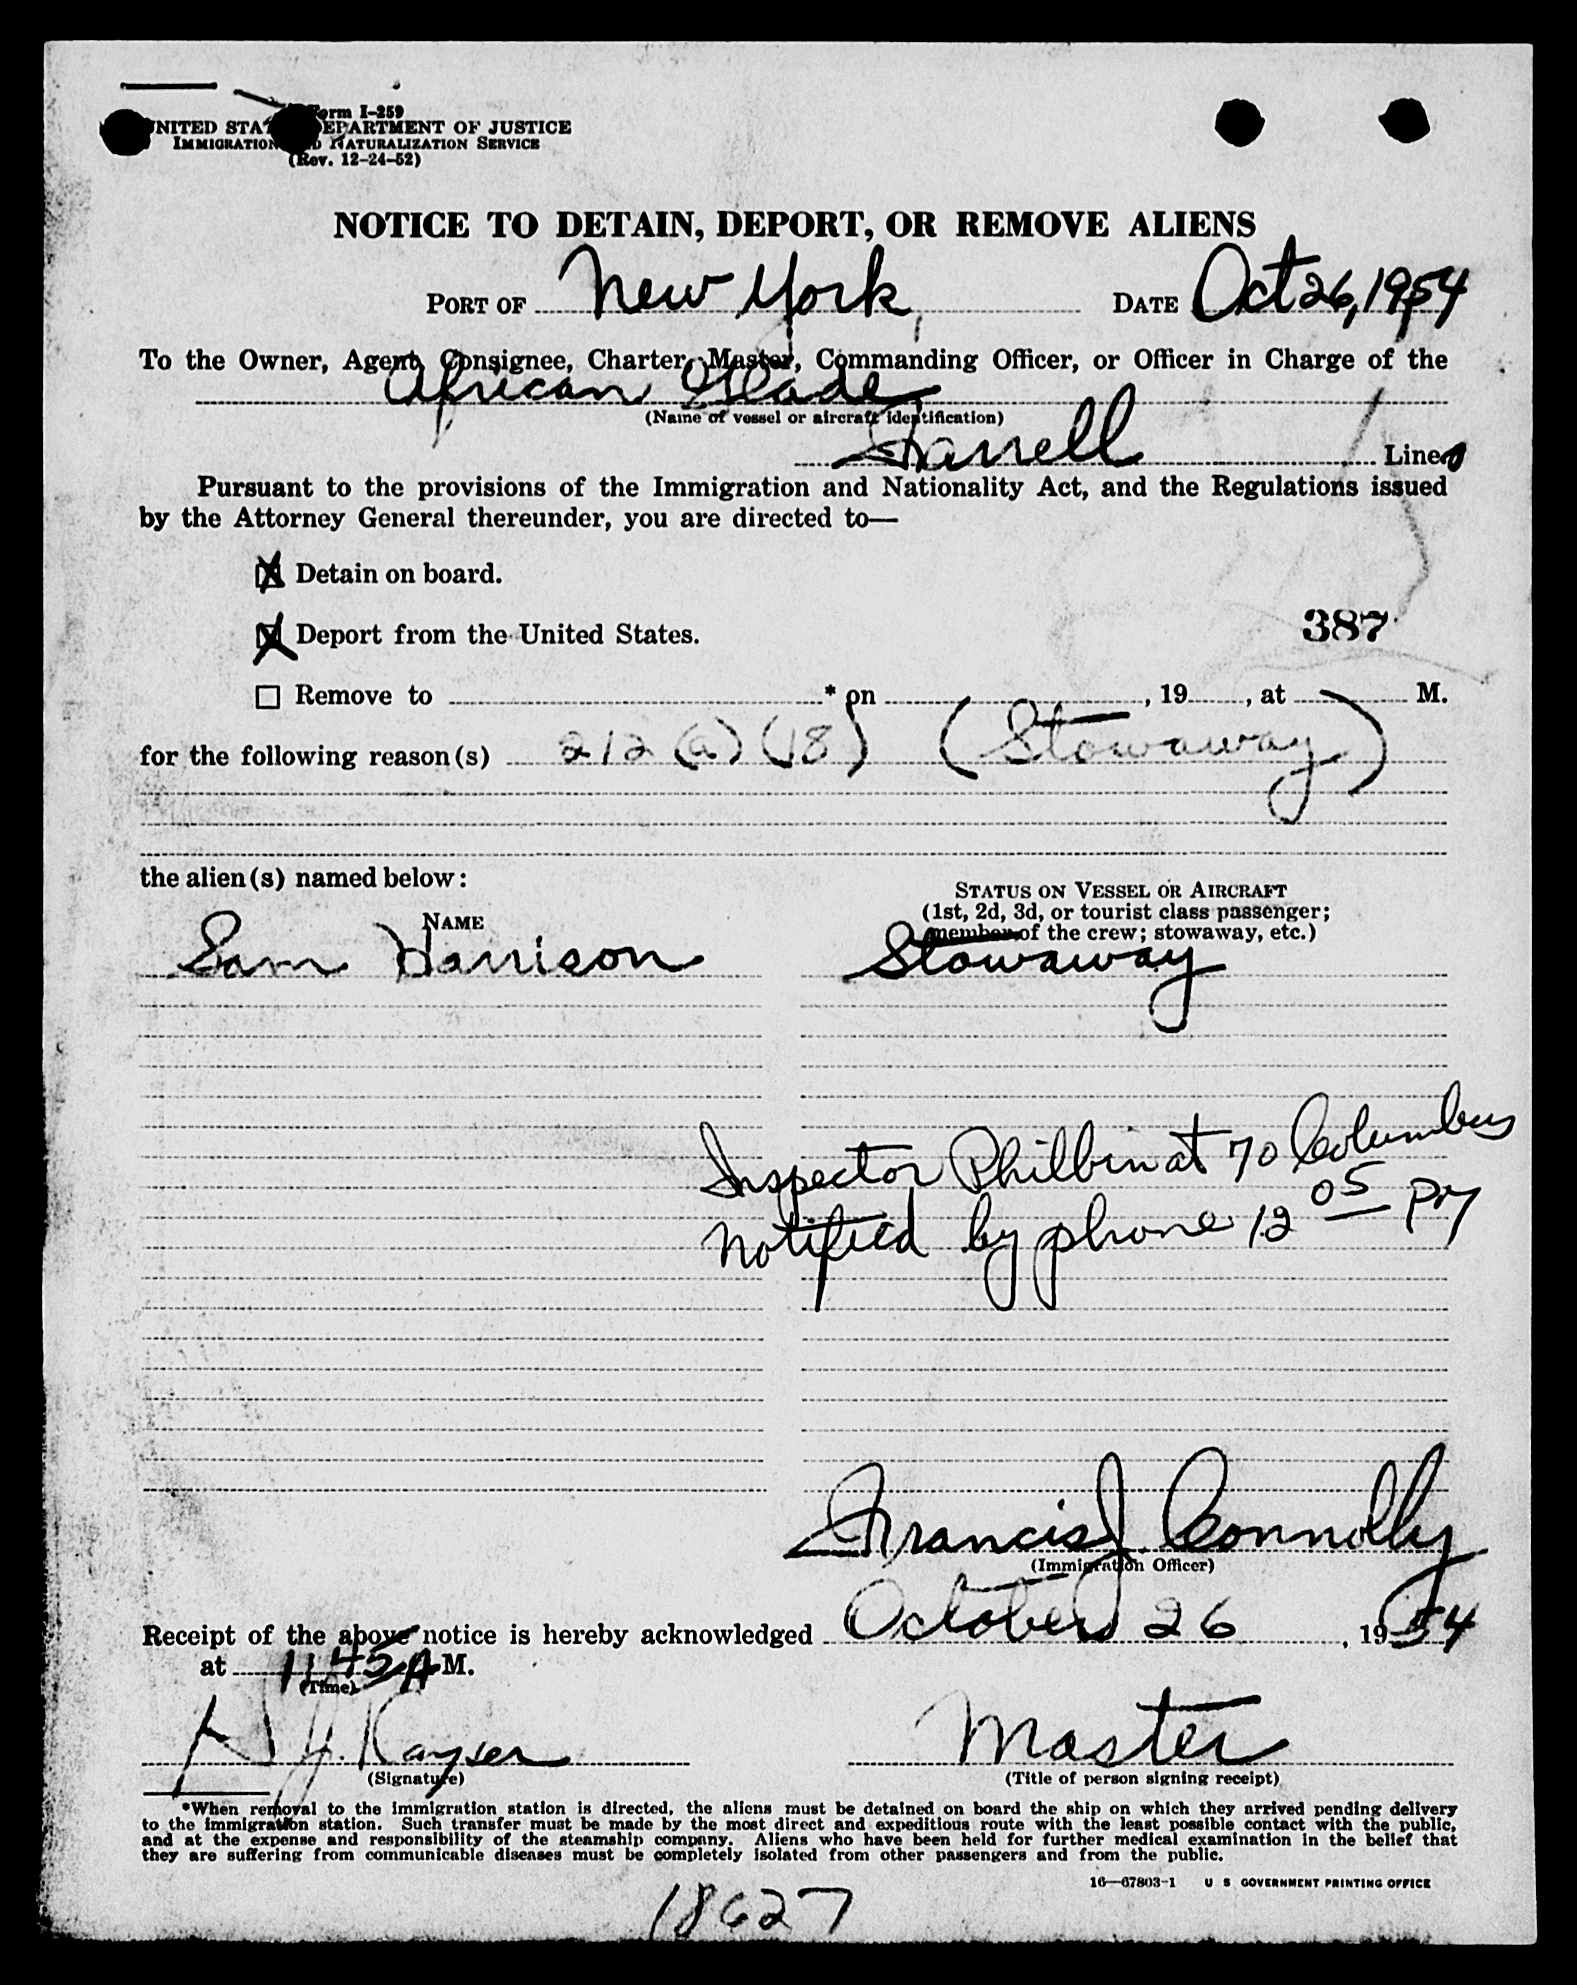 Form I-259
UNITED STATES DEPARTMENT OF JUSTICE
IMMIGRATION AND NATURALIZATION SERVICE
(Rev. 12-24-52)
NOTICE TO DETAIN, DEPORT, OR REMOVE ALIENS
PORT OF New York, DATE Oct 26, 1954
To the Owner, Agent, Consignee, Charter, Master, Commanding Officer, or Officer in Charge of the
African Glade
(Name of vessel or aircraft identification)
Farrell Lines
Pursuant to the provisions of the Immigration and Nationality Act, and the Regulations issued
by the Attorney General thereunder, you are directed to—
X Detain on board.
X Deport from the United States.
387
☐ Remove to * on , 19 , at M.
for the following reason(s) 212 (a) (18) (Stowaway)
the alien(s) named below:
NAME
STATUS ON VESSEL OR AIRCRAFT
(1st, 2d, 3d, or tourist class passenger;
member of the crew; stowaway, etc.)
Sam Harrison Stowaway
Inspector Philbin at 70 Columbus
notified by phone 12 05 PM
Francis J. Connolly
(Immigration Officer)
Receipt of the above notice is hereby acknowledged October 26, 1954
at 1145 A M.
(Time)
J. Kayser Master
(Signature) (Title of person signing receipt)
*When removal to the immigration station is directed, the aliens must be detained on board the ship on which they arrived pending delivery
to the immigration station. Such transfer must be made by the most direct and expeditious route with the least possible contact with the public,
and at the expense and responsibility of the steamship company. Aliens who have been held for further medical examination in the belief that
they are suffering from communicable diseases must be completely isolated from other passengers and from the public.
16—67803-1 U S GOVERNMENT PRINTING OFFICE
18627